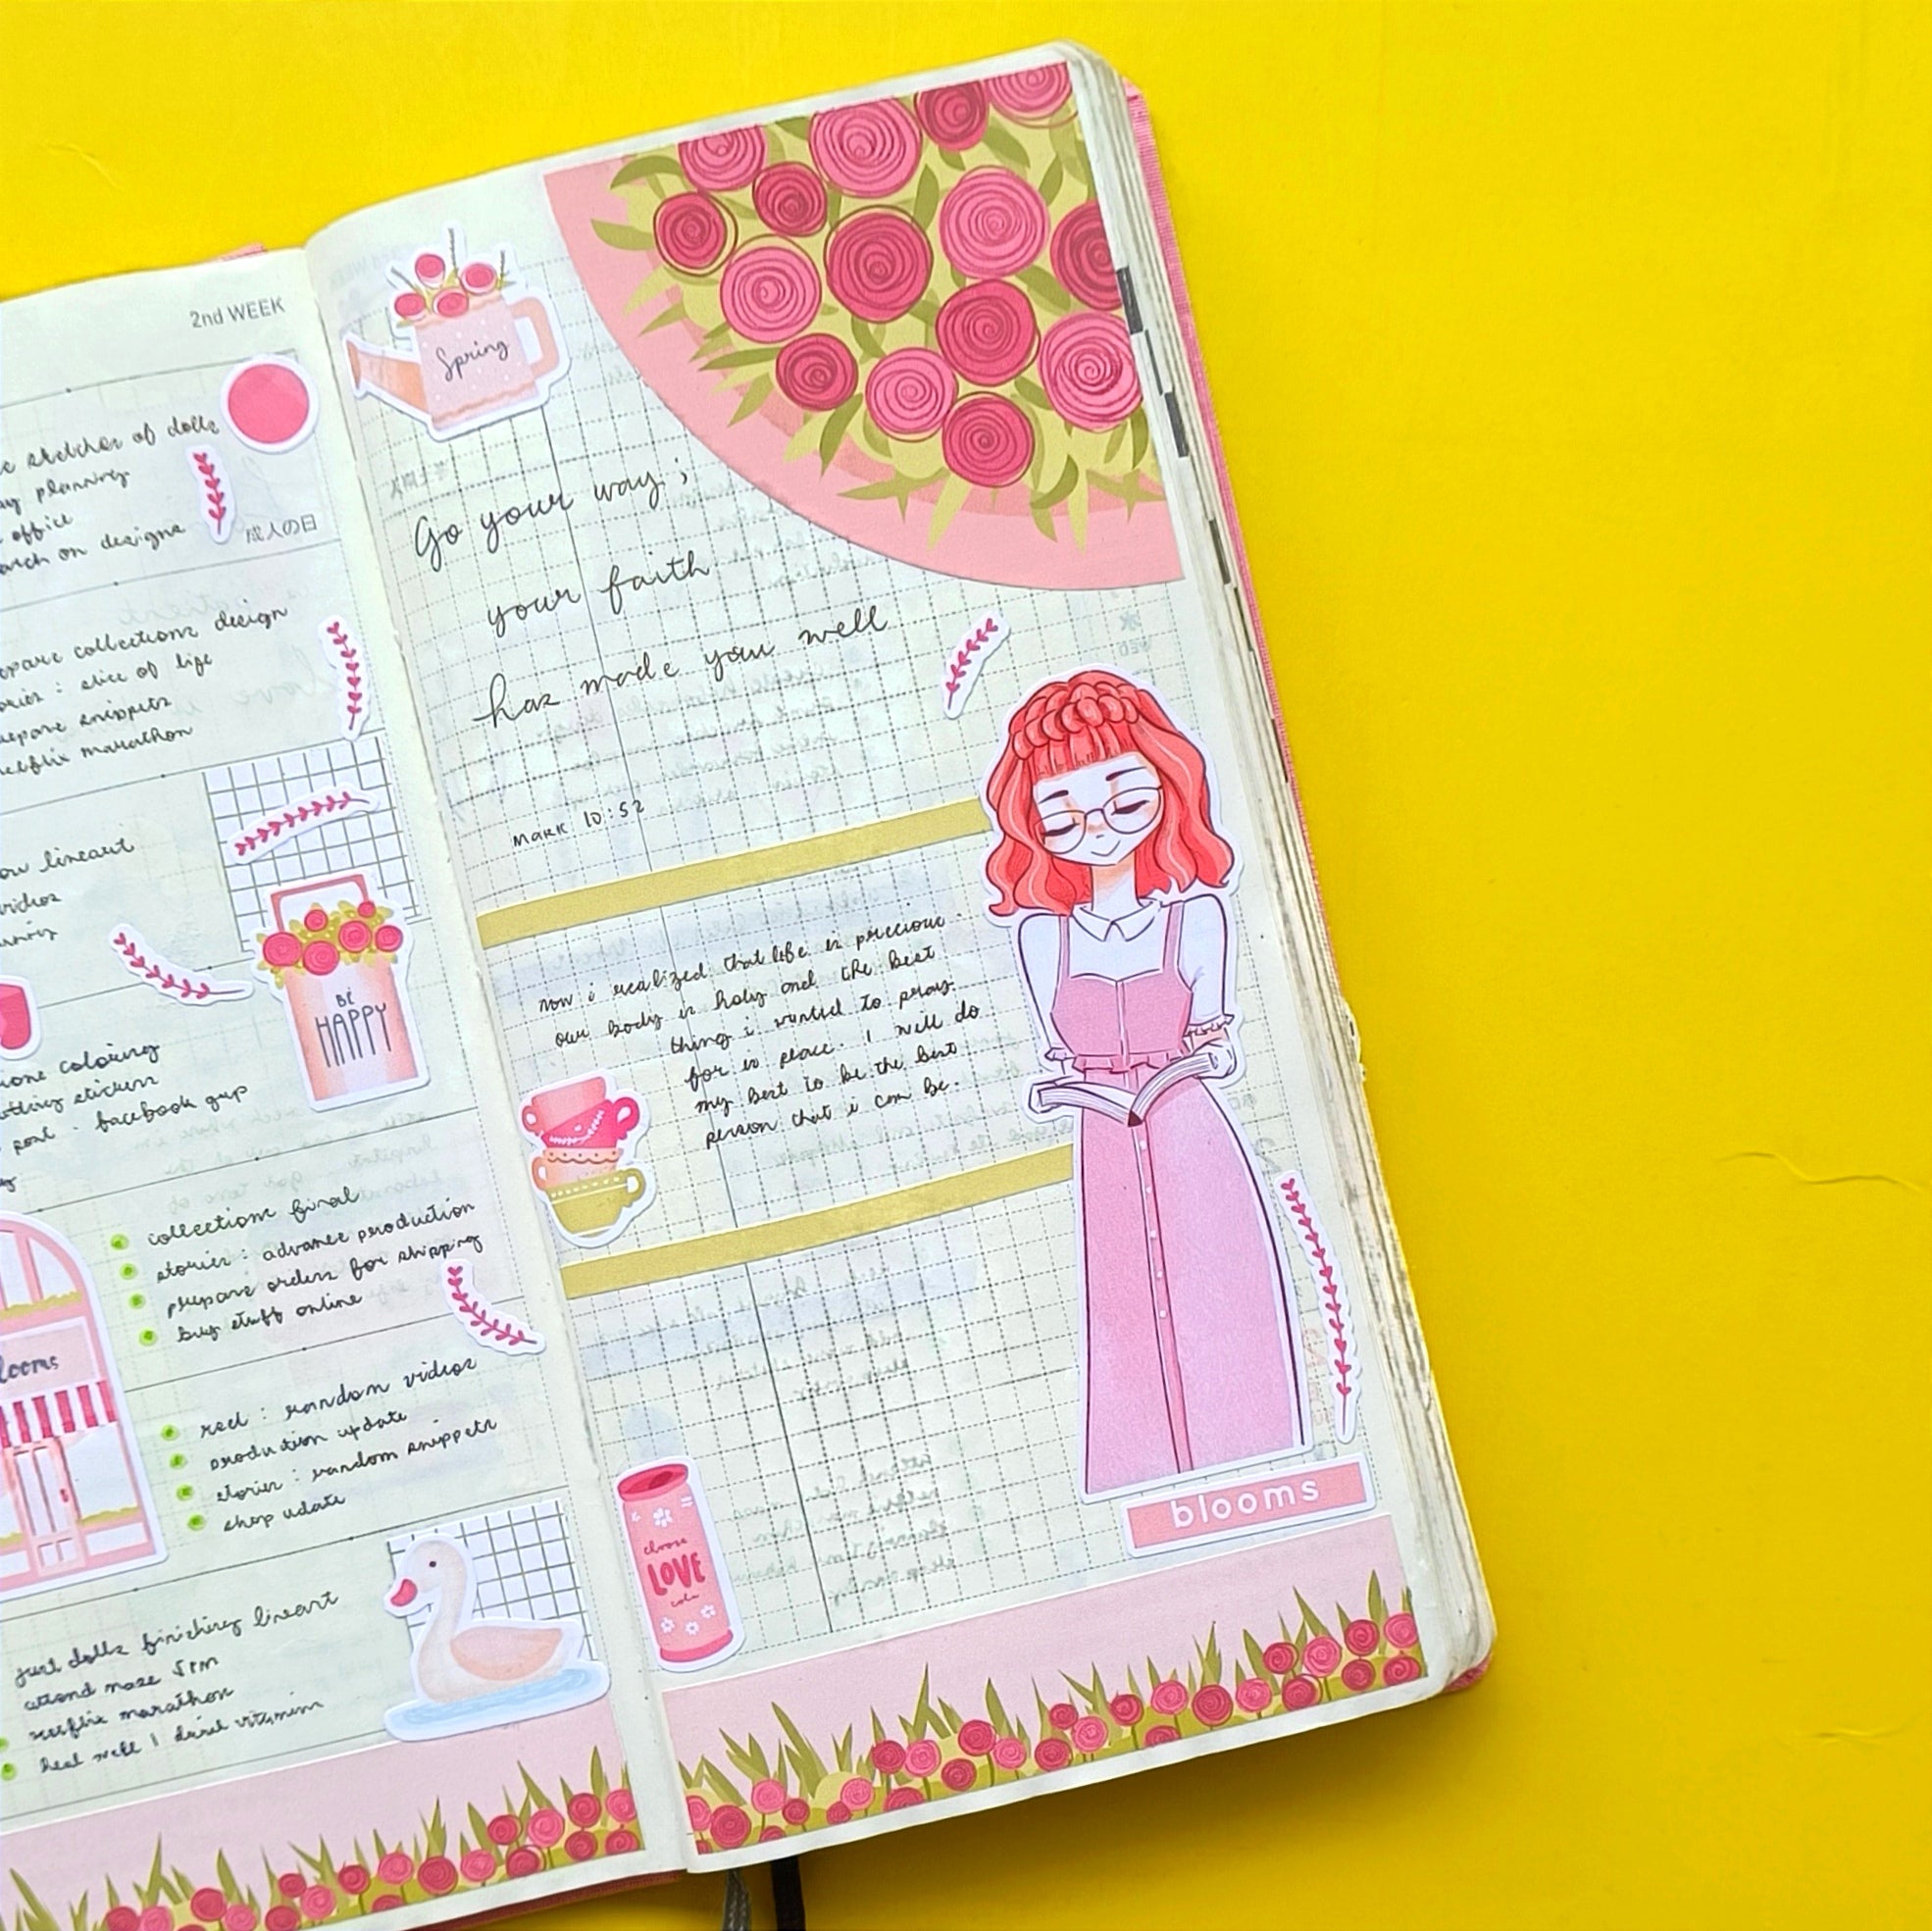 2nd WEEK
sketches of dolls
planning
office
on designs
成人の日
collections design
: slice of life
prepare snippets
netflix marathon
lineart
videos
BE
HAPPY
coloring
clothing stickers
post - facebook grp
collections final
stories : advance production
prepare orders for shipping
buy stuff online
blooms
reel : random videos
production update
stories : random snippets
shop udate
just dolls finishing lineart
attend mass 5pm
netflix marathon
heal well | drink vitamins
Spring
Go your way ;
your faith
has made you well
MARK 10:52
now i realized that life is precious.
our body is holy and the best
thing i wanted to pray
for is peace. I will do
my best to be the best
person that i can be.
choose
LOVE
cola
blooms
WED